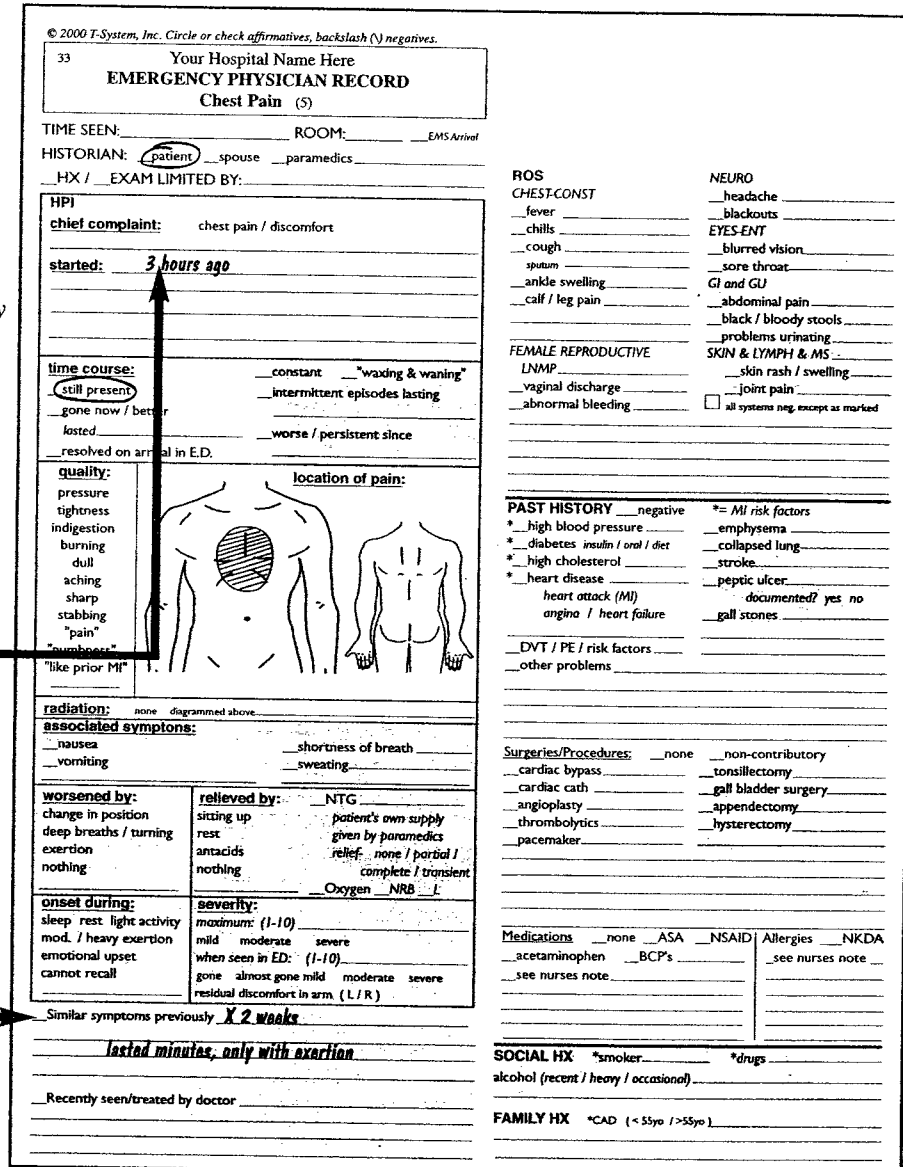 © 2000 T-System, Inc. Circle or check affirmatives, backslash (\) negatives.
33 Your Hospital Name Here
EMERGENCY PHYSICIAN RECORD
Chest Pain (5)
TIME SEEN: ROOM: EMS Arrival
HISTORIAN: __patient __spouse __paramedics
__HX / __EXAM LIMITED BY:
HPI
chief complaint: chest pain / discomfort
started: 3 hours ago
y
time course:
still present
__gone now / better
lasted
__resolved on arrival in E.D.
__constant __"waxing & waning"
__intermittent episodes lasting
__worse / persistent since
quality:
pressure
tightness
indigestion
burning
dull
aching
sharp
stabbing
"pain"
"numbness"
"like prior MI"
location of pain:
radiation: none diagrammed above
associated symptoms:
__nausea __shortness of breath
__vomiting __sweating
worsened by:
change in position
deep breaths / turning
exertion
nothing
relieved by:
sitting up
rest
antacids
nothing
__NTG
patient's own supply
given by paramedics
relief- none / partial /
complete / transient
__Oxygen __NRB __L
onset during:
sleep rest light activity
mod. / heavy exertion
emotional upset
cannot recall
severity:
maximum: (1-10)
mild moderate severe
when seen in ED: (1-10)
gone almost gone mild moderate severe
residual discomfort in arm (L / R)
__Similar symptoms previously X 2 weeks
lasted minutes, only with exertion
__Recently seen/treated by doctor
ROS
CHEST-CONST
__fever
__chills
__cough
sputum
__ankle swelling
__calf / leg pain
FEMALE REPRODUCTIVE
LNMP
__vaginal discharge
__abnormal bleeding
NEURO
__headache
__blackouts
EYES-ENT
__blurred vision
__sore throat
GI and GU
__abdominal pain
__black / bloody stools
__problems urinating
SKIN & LYMPH & MS
__skin rash / swelling
__joint pain
all systems neg. except as marked
PAST HISTORY __negative *= MI risk factors
*__high blood pressure
*__diabetes insulin / oral / diet
*__high cholesterol
*__heart disease
heart attack (MI)
angina / heart failure
__DVT / PE / risk factors
__other problems
__emphysema
__collapsed lung
__stroke
__peptic ulcer
documented? yes no
__gall stones
Surgeries/Procedures: __none __non-contributory
__cardiac bypass
__cardiac cath
__angioplasty
__thrombolytics
__pacemaker
__tonsillectomy
__gall bladder surgery
__appendectomy
__hysterectomy
Medications __none __ASA __NSAID
__acetaminophen __BCP's
__see nurses note
Allergies __NKDA
__see nurses note
SOCIAL HX *smoker *drugs
alcohol (recent / heavy / occasional)
FAMILY HX *CAD ( < 55yo / >55yo )